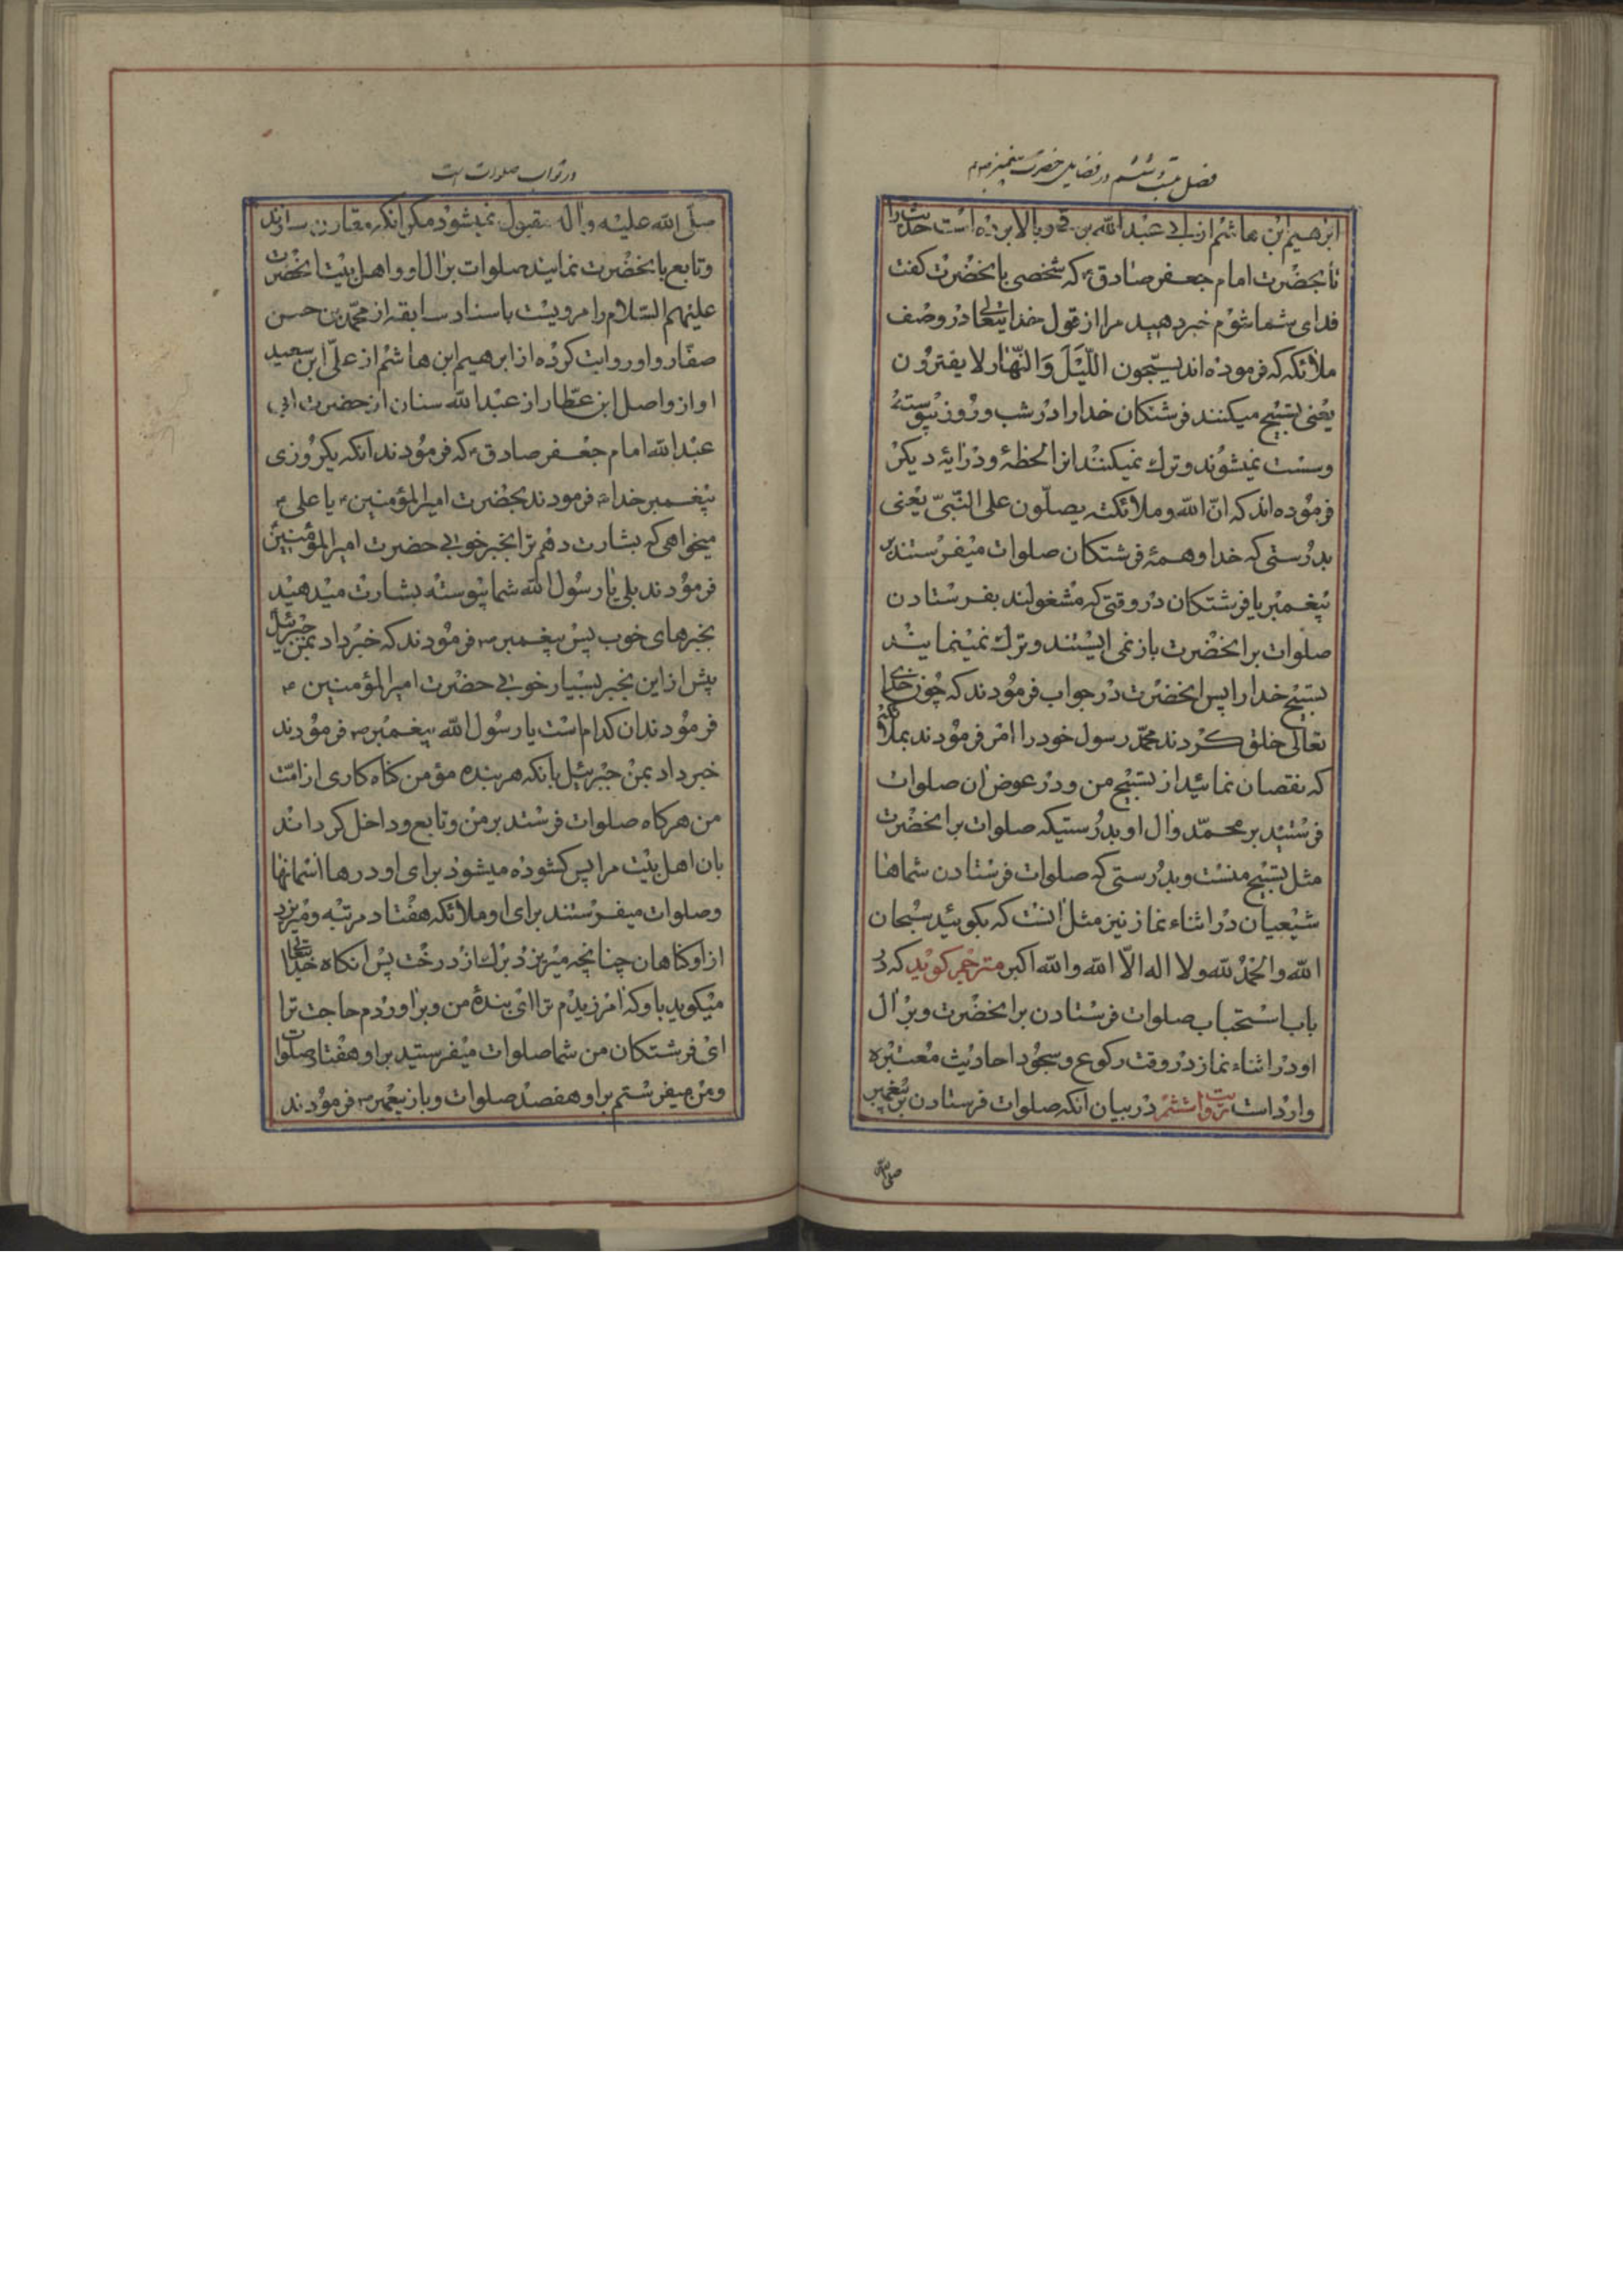 فصل بیست و ششم در فضایل حضرت پیغمبر ص
ابرهیم ابن هاشم از ابی عبدالله برقی و بالا برده است حدیث را
تا بحضرت امام جعفر صادق ع که شخصی بانحضرت کفت
فدای شما شوم خبر دهید مرا از قول خدایتعالی در وصف
ملائکه که فرموده اند یسبّحون اللّیل وَالنّهار لا یفترون
یعنی تسبیح میکنند فرشتکان خدا را در شب و روز پیوسته
وسست نمیشوند و ترك نمیکنند انرا لحظۀ و در ایۀ دیکر
فرموده اند که انّ الله و ملائکته یصلّون علی النّبیّ یعنی
بدرستی که خدا و همۀ فرشتکان صلوات میفرستند بر
پیغمبر یا فرشتکان در وقتی که مشغولند بفرستادن
صلوات بر انحضرت باز نمی ایستند و ترك نمینمایند
تسبیح خدا را پس انحضرت در جواب فرمودند که چون خدای
تعالی خلق کردند محمّد رسول خود را امر فرمودند بملائکه
که نقصان نمائید از تسبیح من و در عوض ان صلوات
فرستید بر محمّد وال او بدرستیکه صلوات بر انحضرت
مثل تسبیح منست و بدرستی که صلوات فرستادن شماها
شیعیان در اثناء نماز نیز مثل انست که بکوئید سبحان
الله والحمد لله ولا اله الّا الله والله اکبر مترجم کوید که در
باب استحباب صلوات فرستادن بر انحضرت و بر ال
او در اثناء نماز در وقت رکوع و سجود احادیث معتبره
وارد است بیست و ششم در بیان انکه صلوات فرستادن بر پیغمبر
صلی الله
در ثواب صلوات است
صلّی الله علیه واله مقبول نمیشود مکر انکه مقارن سازند
وتابع بانحضرت نمایند صلوات بر ال او و اهل بیت انحضرت
علیهم السّلام را مرویست باسناد سابقه از محمّد بن حسن
صفّار و او روایت کرده از ابرهیم ابن هاشم از علیّ ابن سعید
او از واصل ابن عطّار از عبدالله سنان از حضرت ابی
عبدالله امام جعفر صادق ع که فرمودند انکه یکروزی
پیغمبر خدا ص فرمودند بحضرت امیرالمؤمنین ع یا علی ع
میخواهی که بشارت دهم ترا بخبر خوبی حضرت امیرالمؤمنین
فرمودند بلی یا رسول الله شما پیوسته بشارت میدهید
بخبرهای خوب پس پیغمبر ص فرمودند که خبر داد بمن جبرئیل
پیش از این بخبر بسیار خوبی حضرت امیرالمؤمنین ع
فرمودند ان کدام است یا رسول الله پیغمبر ص فرمودند
خبر داد بمن جبرئیل بانکه هر بنده مؤمن کناه کاری از امّت
من هرکاه صلوات فرستد بر من و تابع و داخل کرداند
بان اهل بیت مرا پس کشوده میشود برای او درها اسمانها
وصلوات میفرستند برای او ملائکه هفتاد مرتبه ومیریزد
از او کناهان چنانچه میریزد برك از درخت پس انکاه خدایتعالی
میکوید باو که امرزیدم ترا ای بندۀ من و براوردم حاجت ترا
ای فرشتکان من شما صلوات میفرستید بر او هفتاد صلوات
ومن میفرستم بر او هفصد صلوات و باز پیغمبر ص فرمودند